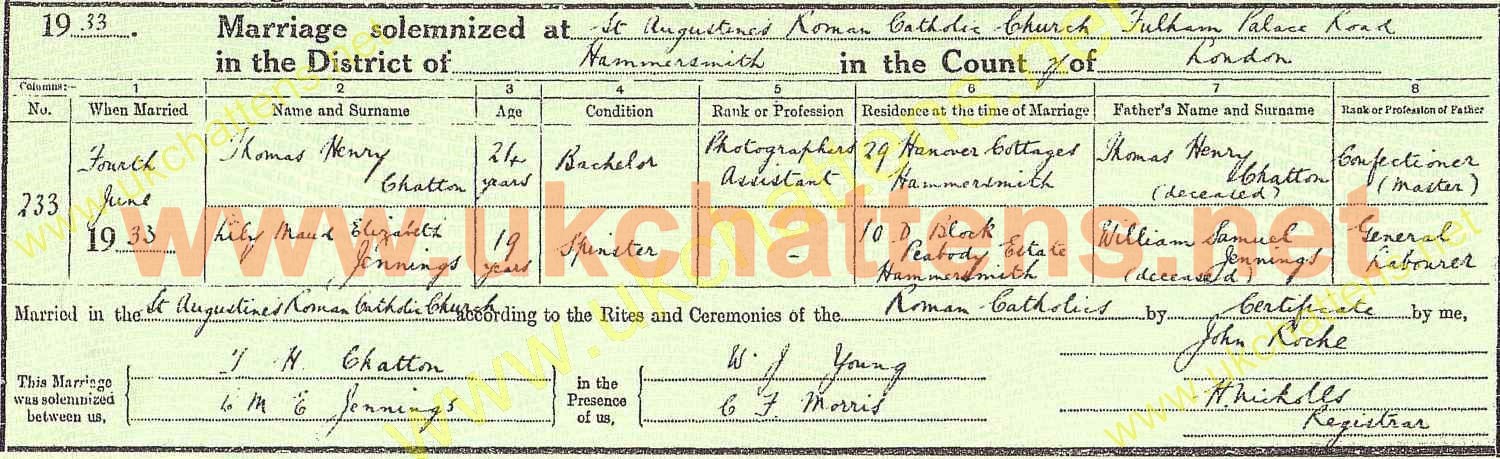 19 33. Marriage solemnized at St Augustine's Roman Catholic Church Fulham Palace Road
in the District of Hammersmith in the County of London
Columns:— 1 2 3 4 5 6 7 8
No. When Married Name and Surname Age Condition Rank or Profession Residence at the time of Marriage Father's Name and Surname Rank or Profession of Father
233
Fourth
June
19 33
Thomas Henry
Chatton
24
years
Bachelor
Photographers
Assistant
29 Hanover Cottages
Hammersmith
Thomas Henry
Chatton
(deceased)
Confectioner
(Master)
Lily Maud Elizabeth
Jennings
19
years
Spinster
-
10 D Block
Peabody Estate
Hammersmith
William Samuel
Jennings
(deceased)
General
Labourer
Married in the St Augustine's Roman Catholic Church according to the Rites and Ceremonies of the Roman Catholics by Certificate by me,
This Marriage
was solemnized
between us,
T H Chatton
L M E Jennings
in the
Presence
of us,
W J Young
C F Morris
John Roche
H. Nicholls
Registrar
www.ukchattens.net
www.ukchattens.net
www.ukchattens.net
www.ukchattens.net
www.ukchattens.net
www.ukchattens.net